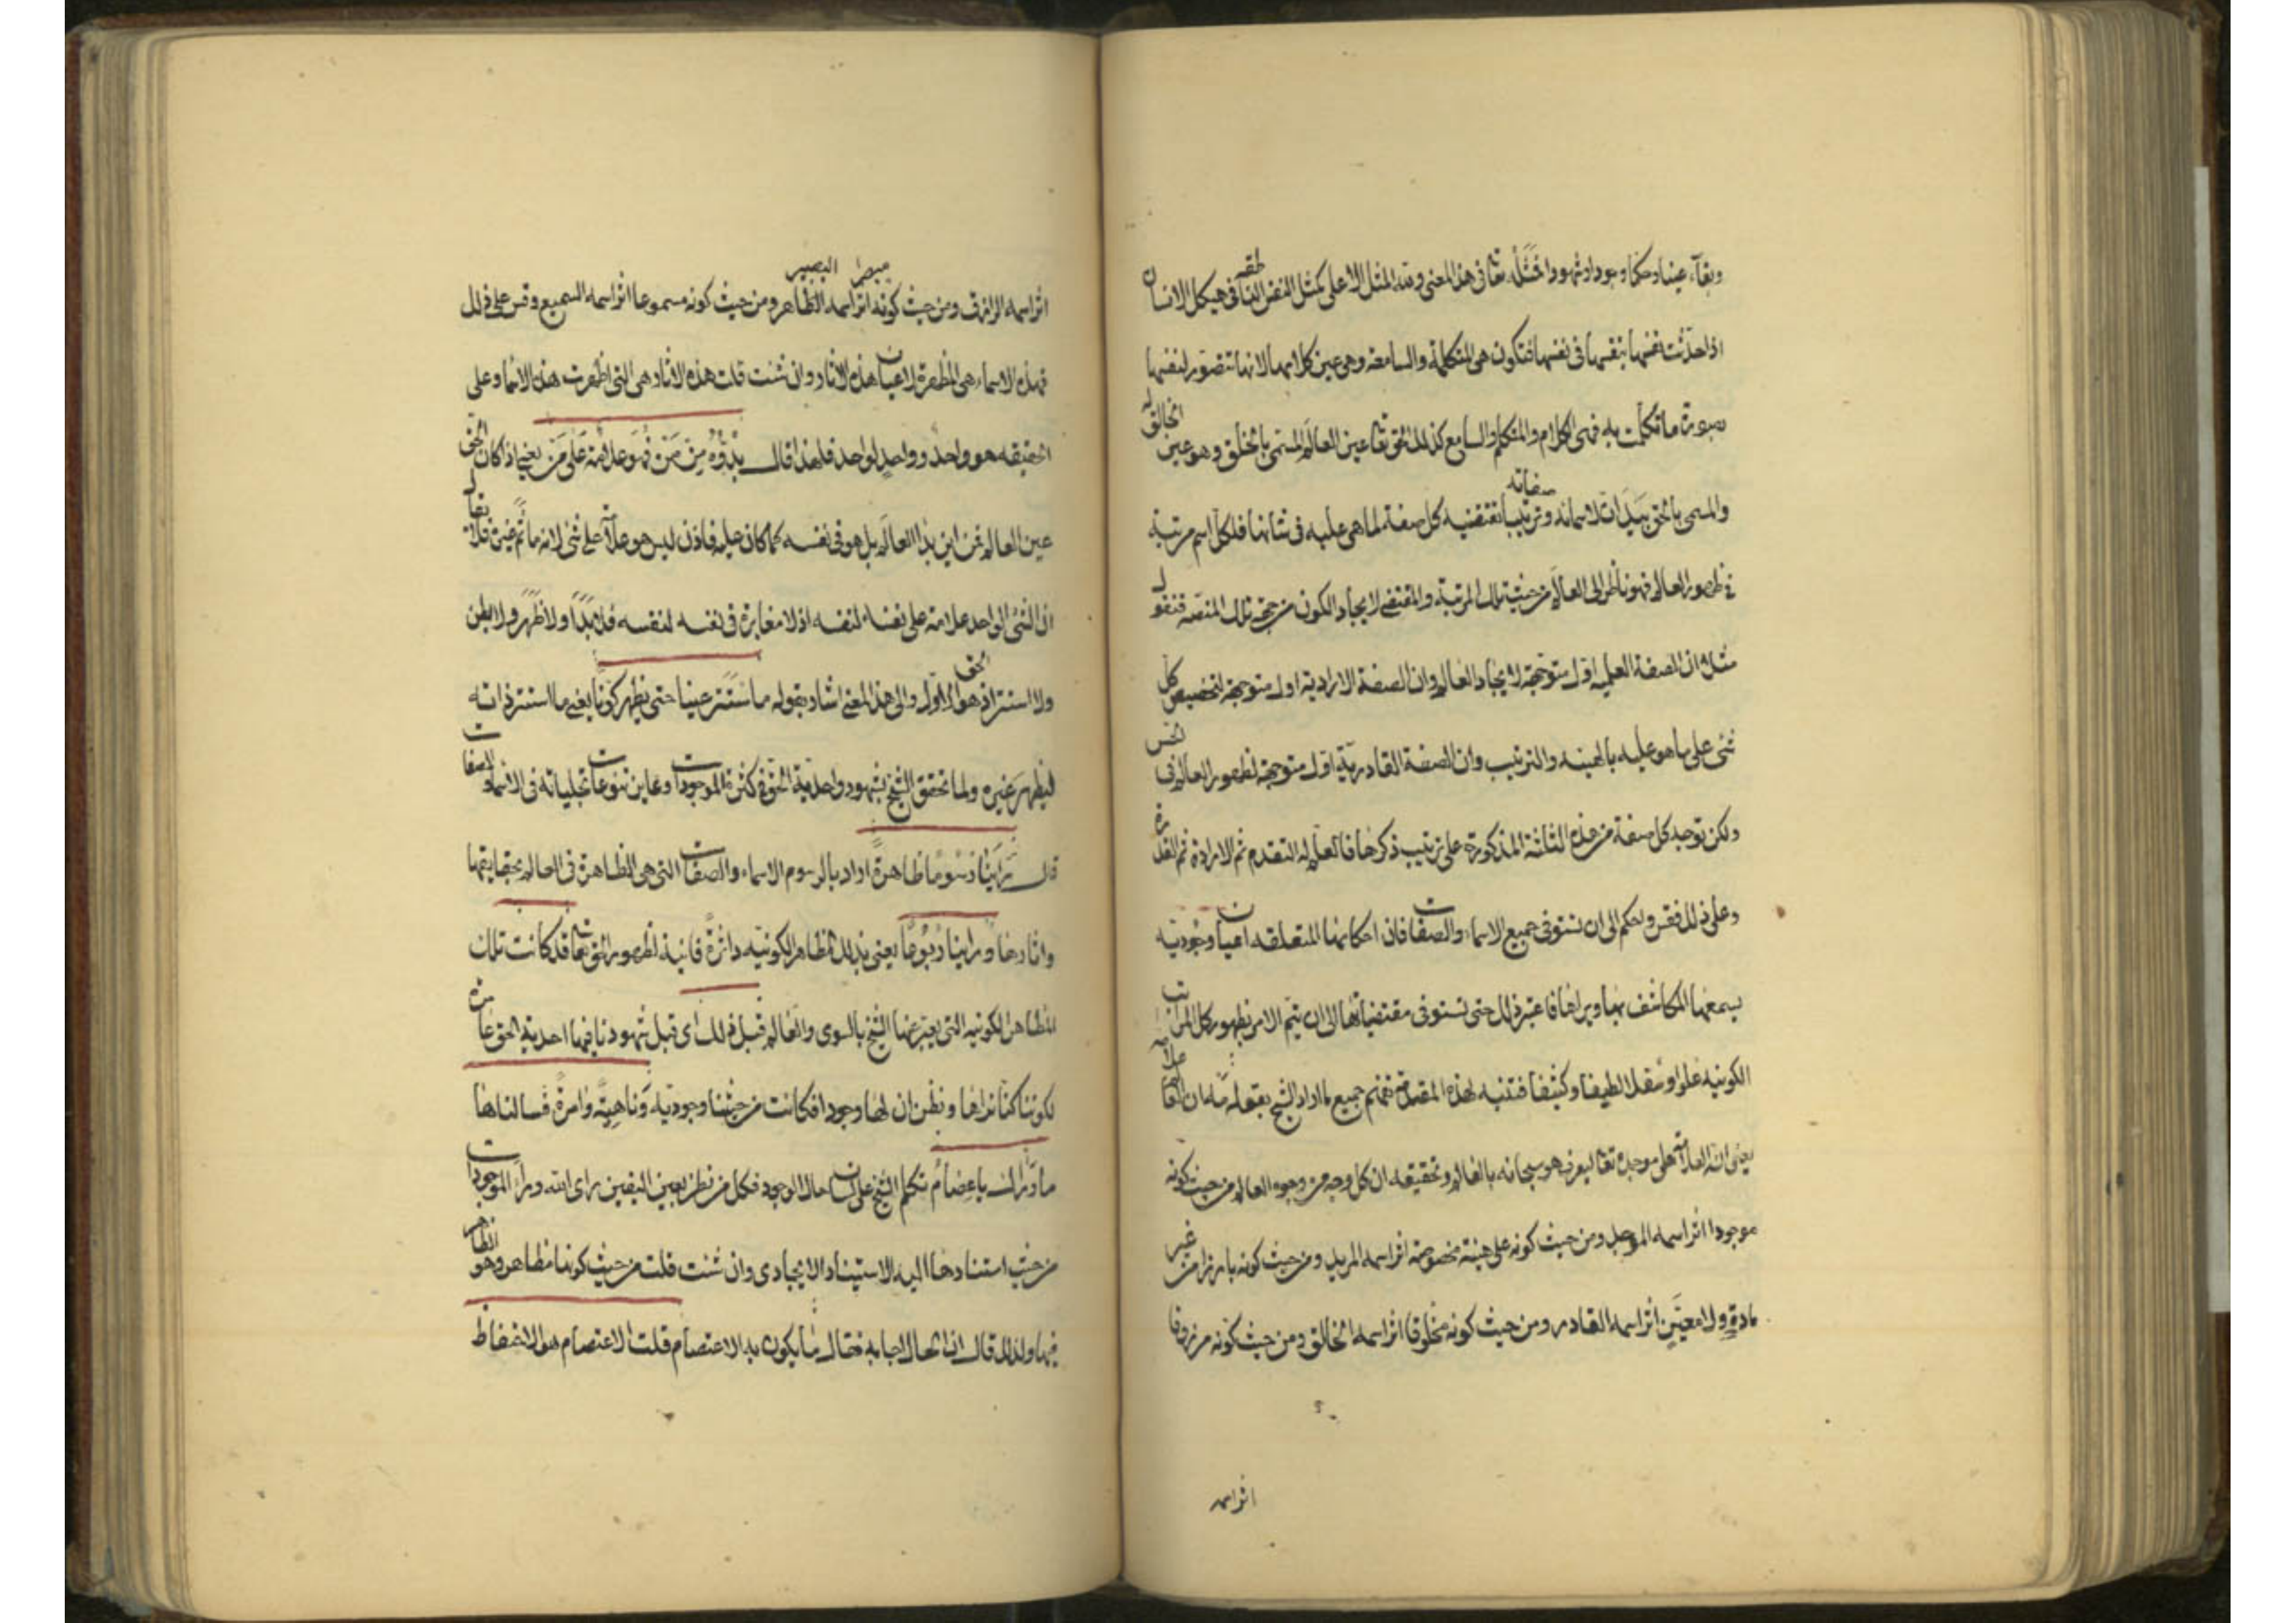 وبقآء عينا وحكما ووجودا وشهودا فمثله تعا فى هذا المعنى ولله المثل الاعلى كمثل النفس الناطقه فى هيكل الانسان
اذا حدثت نفسها بنفسها فى نفسها فتكون هى المتكلمة والسامعة وهى عين كلامها لانها تتصور لنفسها
بصورة ما تكلمت به فهى الكلام والمتكلم والسامع كذلك الحق تعا عين العالم المسمى بالخلق وهو عين الخالق له
والمسمى بالحق بيد ان لاسمائه وصفاته ترتيبا تقتضيه كل صفة لما هى عليه فى شانها فلكل اسم مرتبة
فى ظهور العالم فهو ناظر الى العالم من حيث تلك المرتبة والمقتضى لايجاد الكون من جهة تلك المنصه فنقول
مثلا ان الصفة العلميه اول متوجهة لايجاد العالم وان الصفة الارادية اول متوجهة لتخصيص كل
شئ على ما هو عليه بالهيئه والترتيب وان الصفة القادرية اول متوجهة لظهور العالم فى
ولكن توجه كل صفة من هذه الثلثة المذكورة على ترتيب ذكرها فالعلم له التقدم ثم الارادة ثم القدرة
وعلى ذلك فقس واحكم الى ان تستوفى جميع الاسماء والصفات فان احكامها المتعلقه اعيان وجودية
يسمعها المكاشف بها ويراها فاعتبر ذلك حتى تستوفى مقتضياتها الى ان يتم الامر بظهور كل المراتب
الكونيه علوا وسفلا لطيفا وكثيفا فتنبه لهذه المقدمة تفهم جميع ما اراد الشيخ بقوله علامة
يعنى ان العلامة على موجده تعا ليعرف هو سبحانه بالعالم وتحقيقه ان كل وجه من وجوه العالم من حيث كونه
موجودا اثر اسمه الموجد ومن حيث كونه على هيئة مخصوصة اثر اسمه المريد ومن حيث كونه بارزا من غير
مادة ولا معين اثر اسمه القادر ومن حيث كونه مخلوقا اثر اسمه الخالق ومن حيث كونه مرزوقا
اثر اسمه
اثر اسمه الرازق ومن حيث كونه مبصرا اثر اسمه البصير الظاهر ومن حيث كونه مسموعا اثر اسمه السميع وقس على ذلك
فهذه الاسماء هى المظهرة لاعيان هذه الاثار وان شئت قلت هذه الاثار هى التى اظهرت هذه الاسما وعلى
الحقيقه هو واحد وواحد لواحد فلهذا قال بدؤه من من فهو علامة على من يعنى اذا كان الحق تعا
عين العالم فمن اين بدا العالم بل هو فى نفسه كما كان عليه فاذن ليس هو علامة على شئ لانه ما ثم غيره فلا
ان الشئ الواحد علامة على نفسه لنفسه اذ لا مغايرة فى نفسه لنفسه فلا بدا ولا ظهر ولا بطن
ولا استتر اذ هو الحق الاول والى هذا المعنى اشار بقوله ما استتر عينا حتى يظهر كونا يعنى ما استتر ذاته
ليظهر غيره ولما تحقق الشيخ بشهود واحدية الحق فى كثرة الموجودات وعاين تنوعات تجلياته فى الاسماء والصفات
قال راينا رسوما ظاهرة اراد بالرسوم الاسماء والصفات التى هى الظاهرة فى العالم بحقايقها
واثارها وراينا ربوعا يعنى بذلك المظاهر الكونيه داثرة فانية لظهور الحق تعا قد كانت تلك
المظاهر الكونيه التى يعبر عنها الشيخ بالسوى والعالم قبل ذلك اى قبل شهودنا فيها احدية الحق عامرة
لكوننا كنا نراها ونظن ان لها وجودا فكانت من حيثنا وجودية وناهية وامرة فسالناها
ما وراك يا عصام تكلم الشيخ على لسان حال الوجود فكل من نظر بعين اليقين راى الله وراء الموجودات
من حيث استنادها اليه الاستناد الايجادى وان شئت قلت من حيث كونها مظاهر وهو الظاهر
فيها ولذلك قال انا الحال اجابه فقال ما يكون به الاعتصام قلت الاعتصام هو الانحفاظ